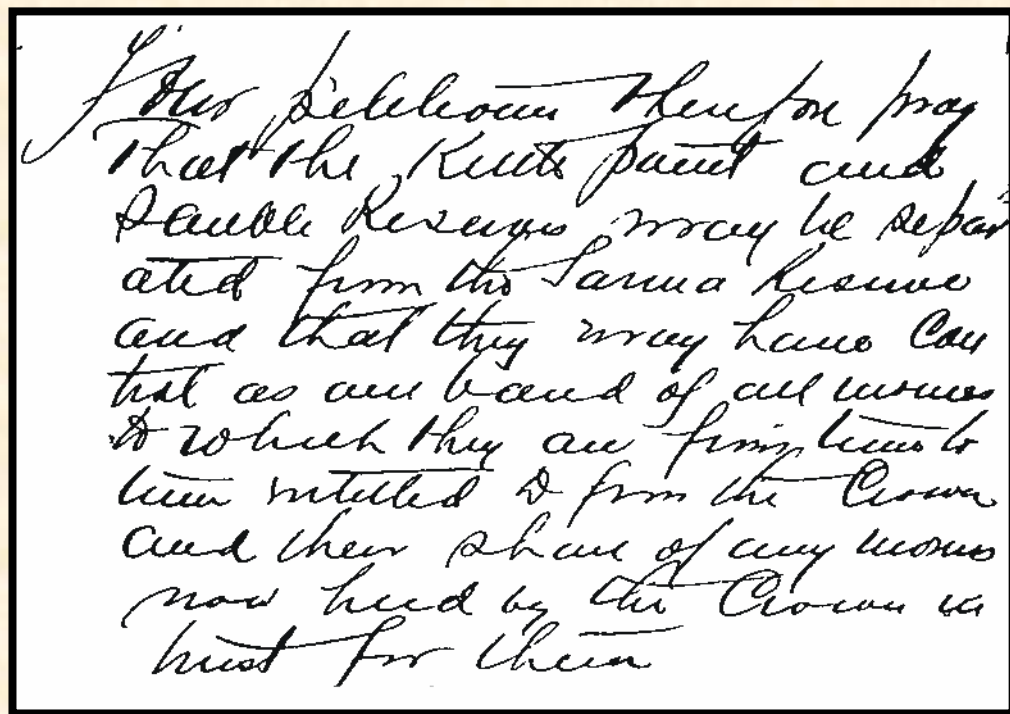 Your petitioners therefore pray
that the Kettle point and
Sauble Reserves may be separ
ated from the Sarnia Reserve
and that they may have Con
trol as one band of all monies
to which they are from time to
time entitled to from the Crown
and their share of any monies
now held by the Crown in
trust for them